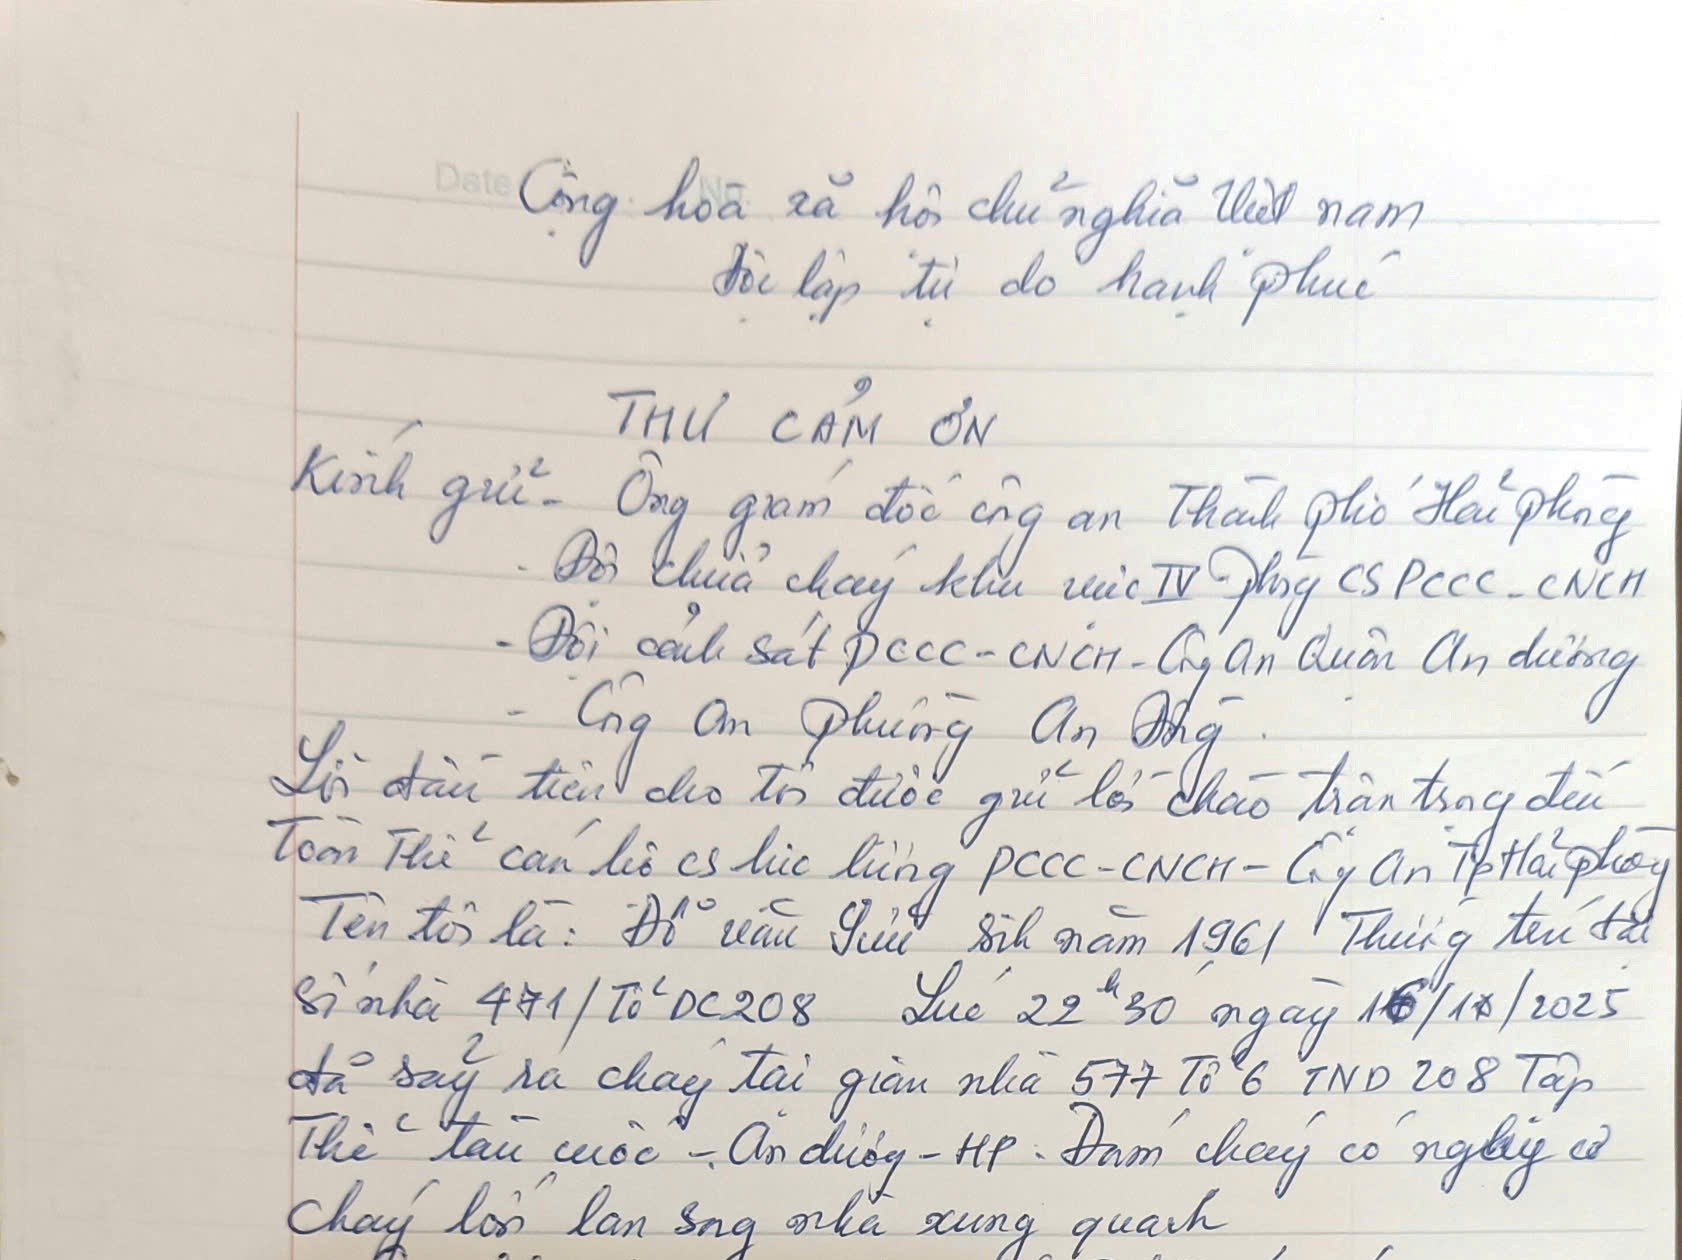 Date No.
Cộng hoà xã hội chủ nghĩa Việt nam
Độc lập tự do hạnh phúc
THƯ CẢM ƠN
Kính gửi - Ông giám đốc công an Thành phố Hải phòng
- Đội chữa cháy khu vực IV - phòng CS PCCC - CNCH
- Đội cảnh sát PCCC - CNCH - Công An Quận An dương
- Công An phường An Đồng.
Lời đầu tiên cho tôi được gửi lời chào trân trọng đến
Toàn Thể cán bộ cs lực lượng PCCC - CNCH - Công An Tp Hải phòng
Tên tôi là: Đỗ văn Sửu sinh năm 1961 Thường trú tại
Số nhà 471/Tổ DC208 Lúc 22h30 ngày 16/1/2025
đã sảy ra cháy tại gian nhà 577 Tổ 6 TND 208 Tập
Thể tàu cuốc - An dương - HP. Đám cháy có nguy cơ
cháy lớn lan sang nhà xung quanh